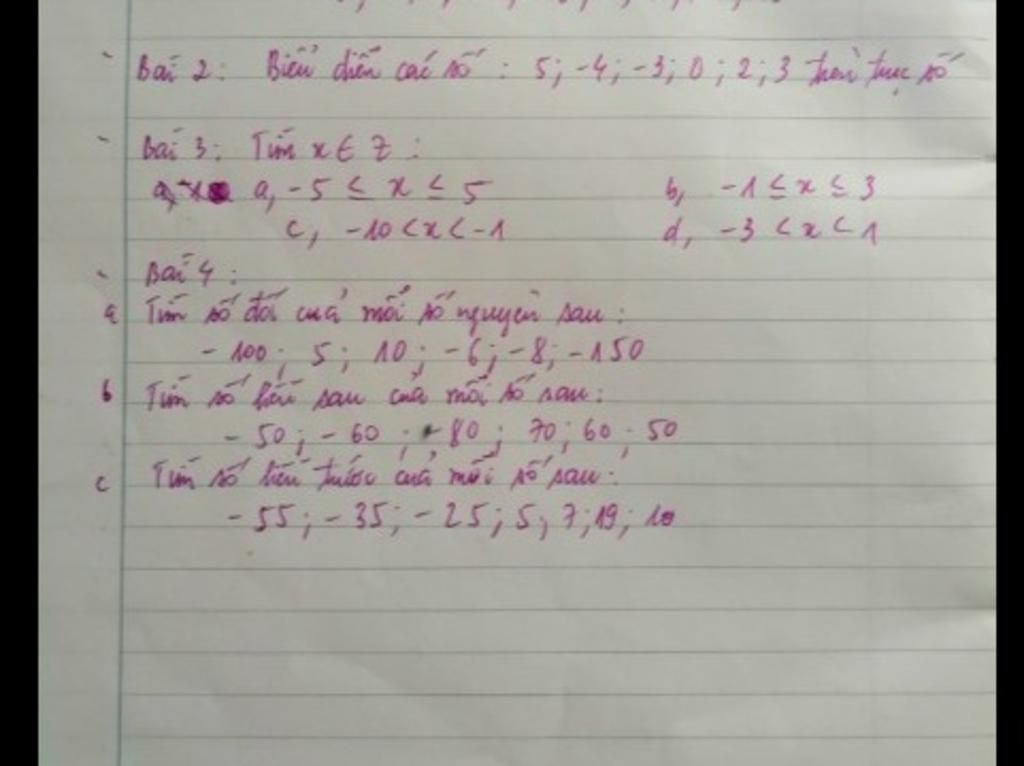 Bài 2: Biểu diễn các số: 5; -4; -3; 0; 2; 3 trên trục số
Bài 3: Tìm x ∈ Z:
a, -5 ≤ x ≤ 5 b, -1 ≤ x ≤ 3
c, -10 < x < -1 d, -3 < x < 1
Bài 4:
a Tìm số đối của mỗi số nguyên sau:
-100; 5; 10; -6; -8; -150
b Tìm số liền sau của mỗi số sau:
-50; -60; -80; 70; 60; 50
c Tìm số liền trước của mỗi số sau:
-55; -35; -25; 5; 7; 19; 10